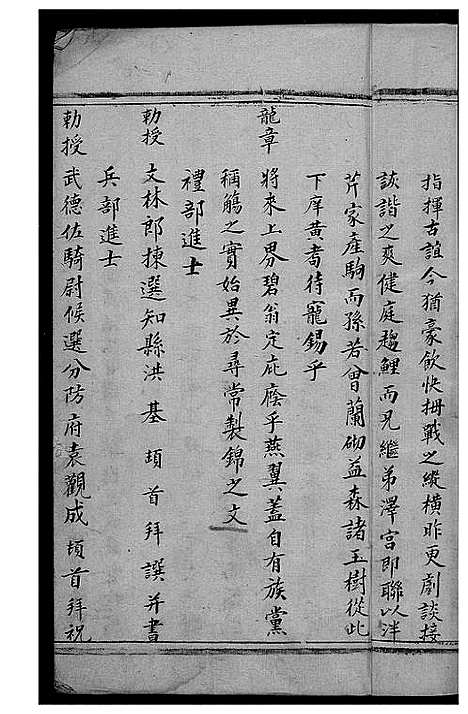 指揮古誼今猶豪飲快拇戰之縱橫昨更劇談接
詼諧之爽健庭趨鯉而兄繼弟澤宮即聯以泮
芹家產駒而孫若曾蘭砌益森諸玉樹從此
下庠黃耇待寵錫乎
龍章 將來上界碧翁定庇廕乎燕翼蓋自有族黨
稱觴之實始異於尋常製錦之文
禮部進士
勅授 文林郎揀選知縣洪基 頓首拜譔并書
兵部進士
勅授 武德佐騎尉候選分防府袁觀成 頓首拜祝